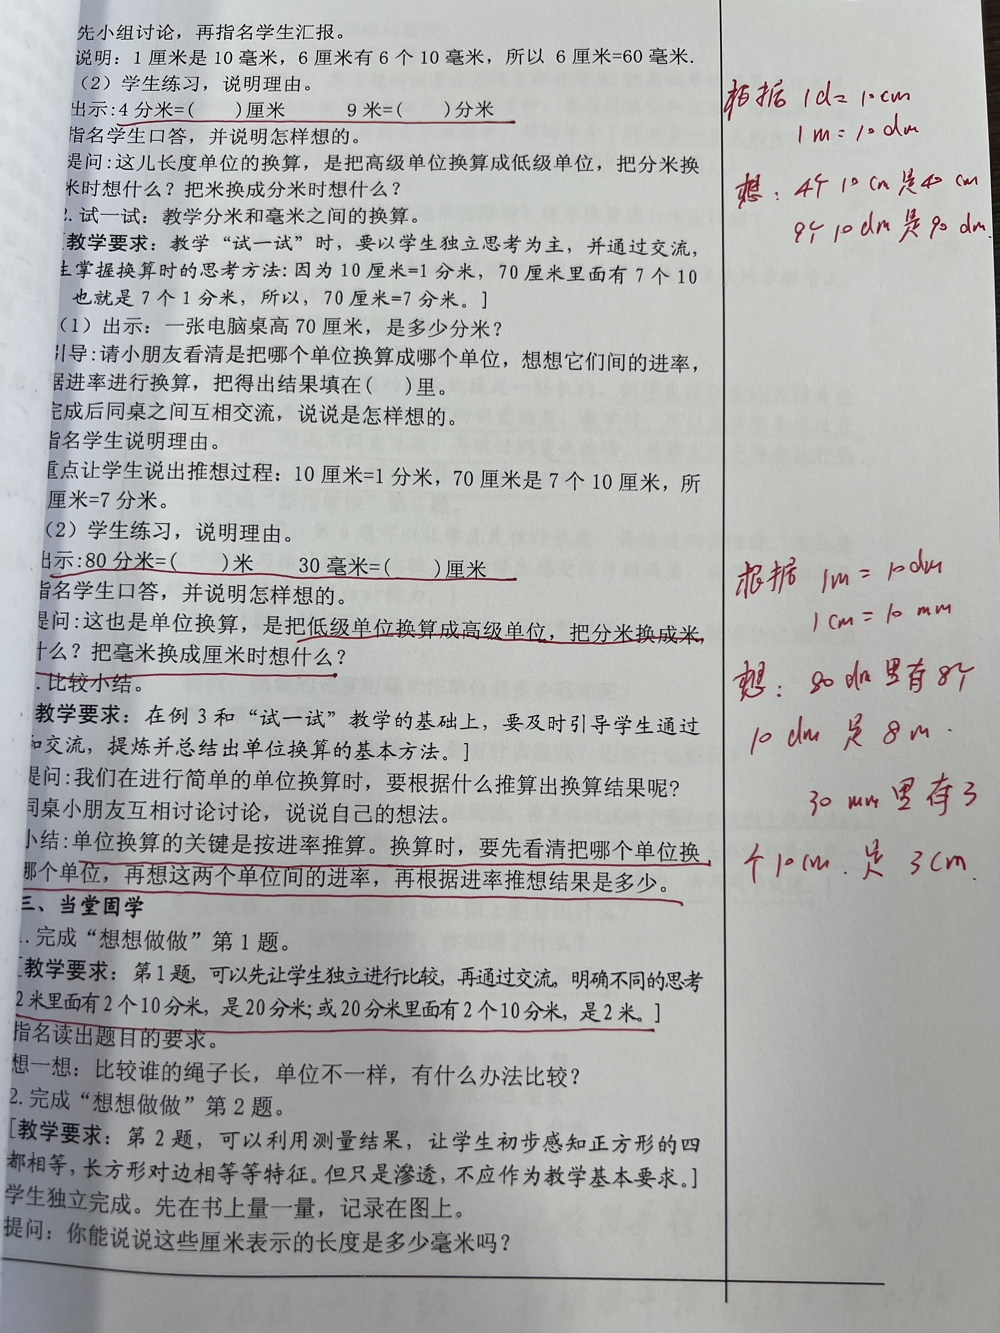 先小组讨论，再指名学生汇报。
说明：1厘米是10毫米，6厘米有6个10毫米，所以 6厘米=60毫米.
（2）学生练习，说明理由。
出示:4分米=(　　)厘米　　9米=(　　)分米
指名学生口答，并说明怎样想的。
提问:这儿长度单位的换算，是把高级单位换算成低级单位，把分米换
米时想什么？把米换成分米时想什么？
2.试一试：教学分米和毫米之间的换算。
[教学要求：教学“试一试”时，要以学生独立思考为主，并通过交流，
生掌握换算时的思考方法:因为10厘米=1分米，70厘米里面有7个10
也就是7个1分米，所以，70厘米=7分米。]
（1）出示：一张电脑桌高70厘米，是多少分米？
引导:请小朋友看清是把哪个单位换算成哪个单位，想想它们间的进率，
据进率进行换算，把得出结果填在(　　)里。
完成后同桌之间互相交流，说说是怎样想的。
指名学生说明理由。
重点让学生说出推想过程：10厘米=1分米，70厘米是7个10厘米，所
厘米=7分米。
（2）学生练习，说明理由。
出示:80分米=(　　)米　　30毫米=(　　)厘米
指名学生口答，并说明怎样想的。
提问:这也是单位换算，是把低级单位换算成高级单位，把分米换成米，
什么？把毫米换成厘米时想什么？
.比较小结。
教学要求：在例3和“试一试”教学的基础上，要及时引导学生通过
和交流，提炼并总结出单位换算的基本方法。]
提问:我们在进行简单的单位换算时，要根据什么推算出换算结果呢?
同桌小朋友互相讨论讨论，说说自己的想法。
小结:单位换算的关键是按进率推算。换算时，要先看清把哪个单位换
哪个单位，再想这两个单位间的进率，再根据进率推想结果是多少。
三、当堂固学
1.完成“想想做做”第1题。
[教学要求：第1题，可以先让学生独立进行比较，再通过交流，明确不同的思考
2米里面有2个10分米，是20分米;或20分米里面有2个10分米，是2米。]
指名读出题目的要求。
想一想：比较谁的绳子长，单位不一样，有什么办法比较？
2.完成“想想做做”第2题。
[教学要求：第2题，可以利用测量结果，让学生初步感知正方形的四
都相等，长方形对边相等等特征。但只是渗透，不应作为教学基本要求。]
学生独立完成。先在书上量一量，记录在图上。
提问：你能说说这些厘米表示的长度是多少毫米吗？
根据 1d= 10cm
1m=10dm
想：4个10cm是40cm
9个10dm是90dm.
根据 1m=10dm
1cm=10mm
想：80dm里有8个
10dm 是 8m.
30mm里有3
个10cm.是3cm.